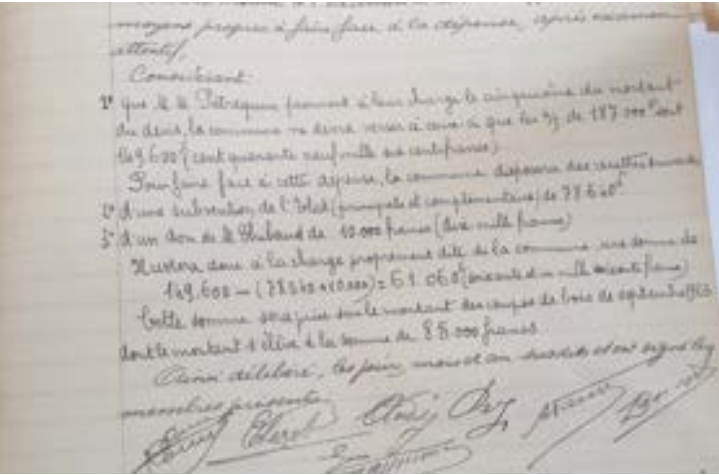 moyens propres à faire face à la dépense, après examen
attentif,
Considérant
1° que M. M. Pétrequin prenant à leur charge le cinquième du montant
du devis, la commune ne devra verser à ceux-ci que les 4/5 de 187.000f soit
149.600f (cent quarante neuf mille six cents francs)
Pour faire face à cette dépense, la commune disposera des recettes suivantes
2° d'une subvention de l'Etat (principale et complémentaire) de 78540f
3° d'un don de M. Thibaud de 10.000 francs (dix mille francs)
Il restera donc à la charge proprement dite de la commune une somme de
149.600 - (78540+10.000) = 61 060f (soixante et un mille soixante francs)
Cette somme sera prise sur le montant des coupes de bois de septembre
dont le montant s'élève à la somme de 85 000 francs
Ainsi délibéré, les jour, mois et an susdits et ont signé les
membres présents